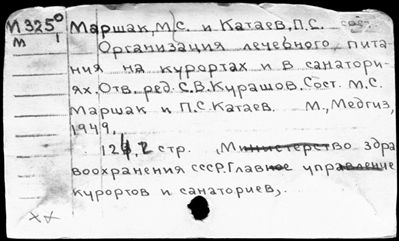 М325⁰ Маршак, М/С. и Катаев, П.С. сост.
М 1
Организация лечебного пита-
ния на курортах и в санатори-
ях. Отв. ред. С.В. Курашов. Сост. М.С.
Маршак и П.С. Катаев. М., Медгиз,
1949.
124, 2 стр. (Министерство здра
воохранения СССР. Главное управление
курортов и санаториев).
хх